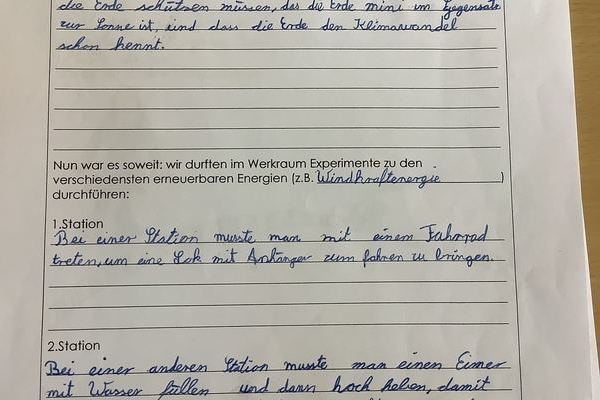 die Erde schützen müssen, das die Erde mini im Gegensatz
zur Sonne ist, und dass die Erde den Klimawandel
schon kennt.
Nun war es soweit: wir durften im Werkraum Experimente zu den
verschiedensten erneuerbaren Energien (z.B. Windkraftenergie)
durchführen:
1.Station
Bei einer Station musste man mit einem Fahrrad
treten, um eine Lok mit Anhänger zum fahren zu bringen.
2.Station
Bei einer anderen Station musste man einen Eimer
mit Wasser füllen und dann hoch heben, damit